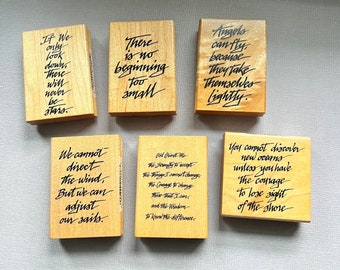 If We
only
look
down,
There
will
never
be
stars.
There
is no
beginning
too
small
Angels
can fly,
because
They take
Themselves
lightly.
We cannot
direct
the wind,
But we can
adjust
our sails.
God Grant me
the Serenity to accept
the things I cannot change,
the Courage to change
those that I can,
and the Wisdom
to know the difference.
You cannot discover
new oceans
unless you have
the courage
to lose sight
of the shore